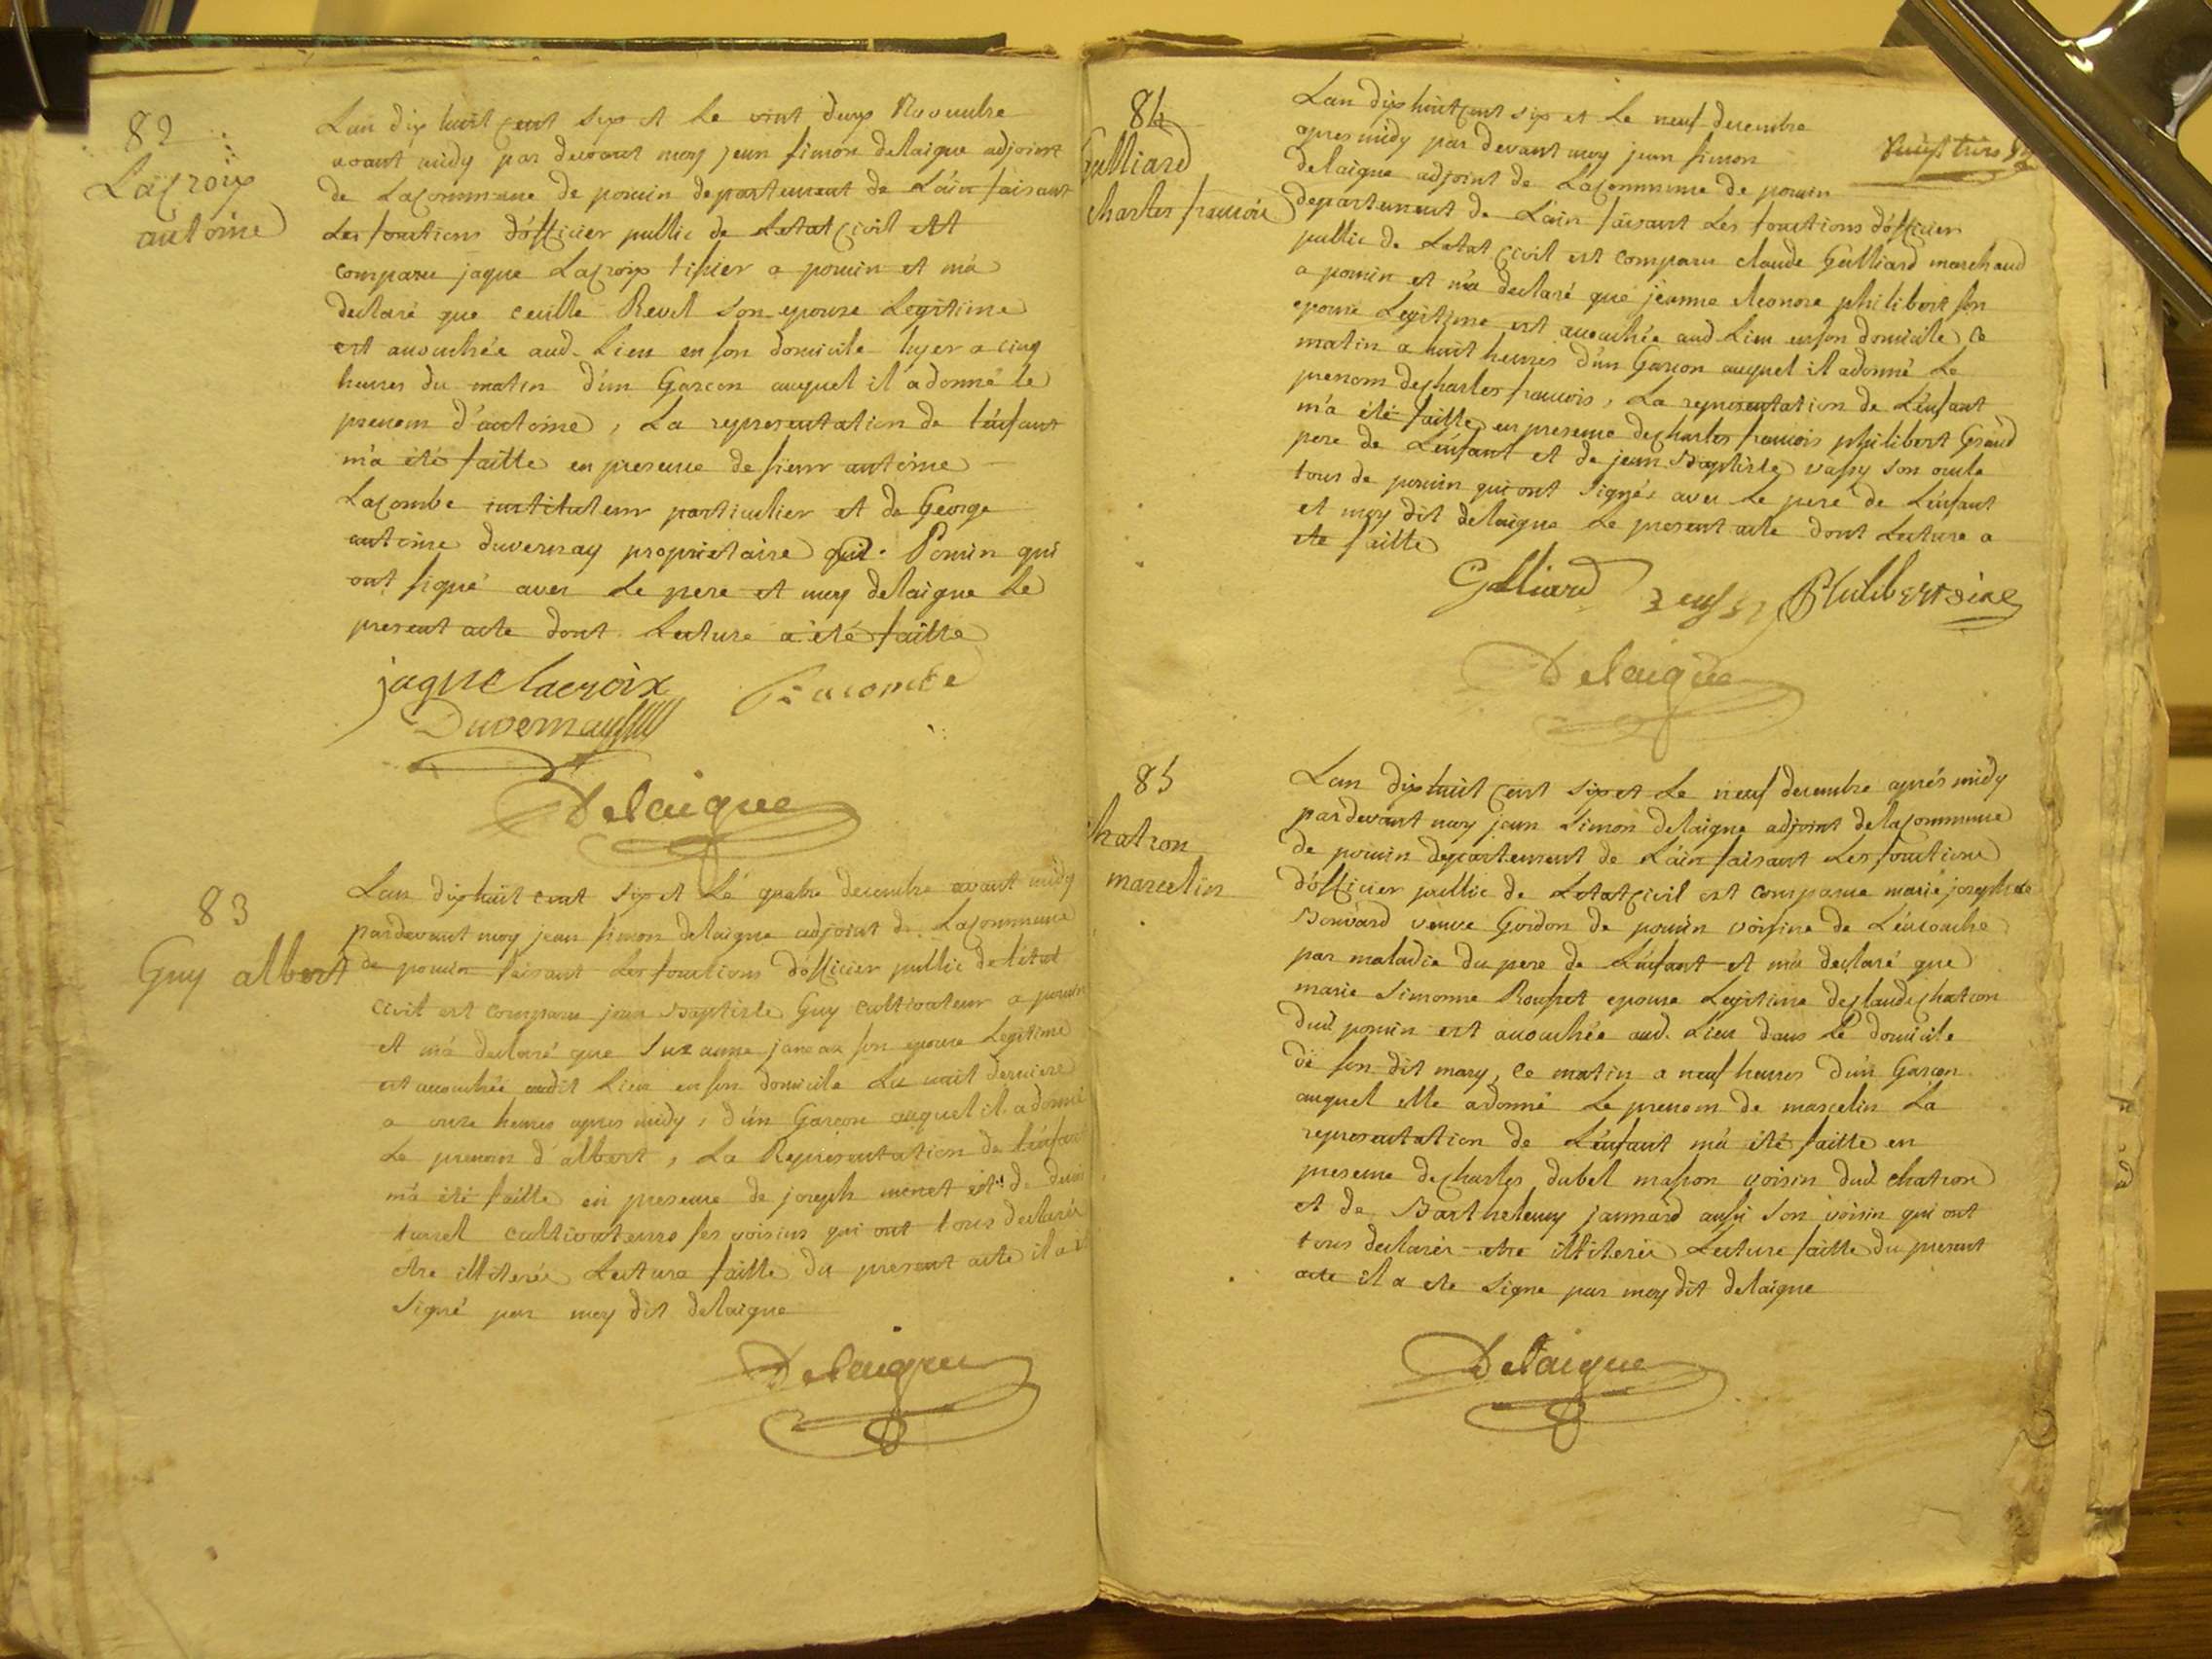 82
Lacroix
antoine
Lan dix huit cent six et le vint deux Novembre
avant midy par devant moy jean simon delaigue adjoint
de La commune de poncin departement de Láin faisant
Les fonctions dófficier public de Letat civil est
comparu jaque Lacroix tissier a poncin et má
declaré que Revel son epouse Legitime
est accouchée aud. Lieu en son domicile hyer a cinq
heures du matin dún Garcon auquel il a donné le
prenom d'antoine, La representation de lénfant
má été faitte en presence de sieur antoine
Lacombe instituteur particulier et de George
antoine duvernay propriétaire Poncin qui
ont signé avec Le pere et moy delaigue Le
present acte dont Lecture a été faitte
jaque lacroix Lacombe
Duvernay
Delaigue
83
Guy albert
Lan dix huit cent six et Le quatre decembre avant midy
pardevant moy jean simon delaigue adjoint de La commune
de poncin faisant Les fonctions dófficier public de létat
civil est comparu jean Baptiste Guy cultivateur a poncin
et má declaré que Suzanne janeau son epouse Legitime
est accouchée audit Lieu en son domicile La nuit derniere
a onze heures apres midy, dún Garcon auquel il a donné
Le prenom d'albert, La Représentation de lénfant
má été faitte en presence de joseph monet et de denis
turrel cultivateurs ses voisins qui ont tous declarés
etre illiterés Lecture faitte du present acte il a
signé par moy dit delaigue
Delaigue
84
Galliard
charles francois
Lan dix huit cent six et Le neuf decembre
apres midy par devant moy jean simon
delaigue adjoint de La commune de poncin
departement de Láin faisant Les fonctions dófficier
public de Letat civil est comparu claude Galliard marchand
a poncin et má declaré que jeanne eleonore philibert son
epouse Legitime est accouchée aud Lieu en son domicile ce
matin a huit heures dún Garcon auquel il a donné Le
prenom de charles francois, La representation de Lénfant
má été faitte en presence de charles francois philibert Grand
pere de Lénfant et de jean Baptiste vassy son oncle
tous de poncin qui ont signés avec Le pere de Lénfant
et moy dit delaigue Le present acte dont Lecture a
ete faitte
Galliard Philibert ainé
Delaigue
85
chatron
marcelin
Lan dix huit cent six et Le neuf decembre aprés midy
pardevant moy jean simon delaigue adjoint de la commune
de poncin departement de Láin faisant Les fonctions
dófficier public de Letat civil est comparue marie josephte
Bouvard veuve Goidon de poncin voisine de Láccouche
par maladie du pere de Lénfant et má declaré que
marie simonne Rousset epouse Legitime de claude chatron
dud. poncin est accouchée aud. Lieu dans Le domicile
de son dit mary, ce matin a neuf heures dún Garcon
auquel elle a donné Le prenom de marcelin La
representation de Lénfant má été faitte en
presence de charles dubel masson voisin dud chatron
et de Barthelemy jannard aussi son voisin qui ont
tous declarés etre illiterés Lecture faitte du present
acte il a ete signe par moy dit delaigue
Delaigue